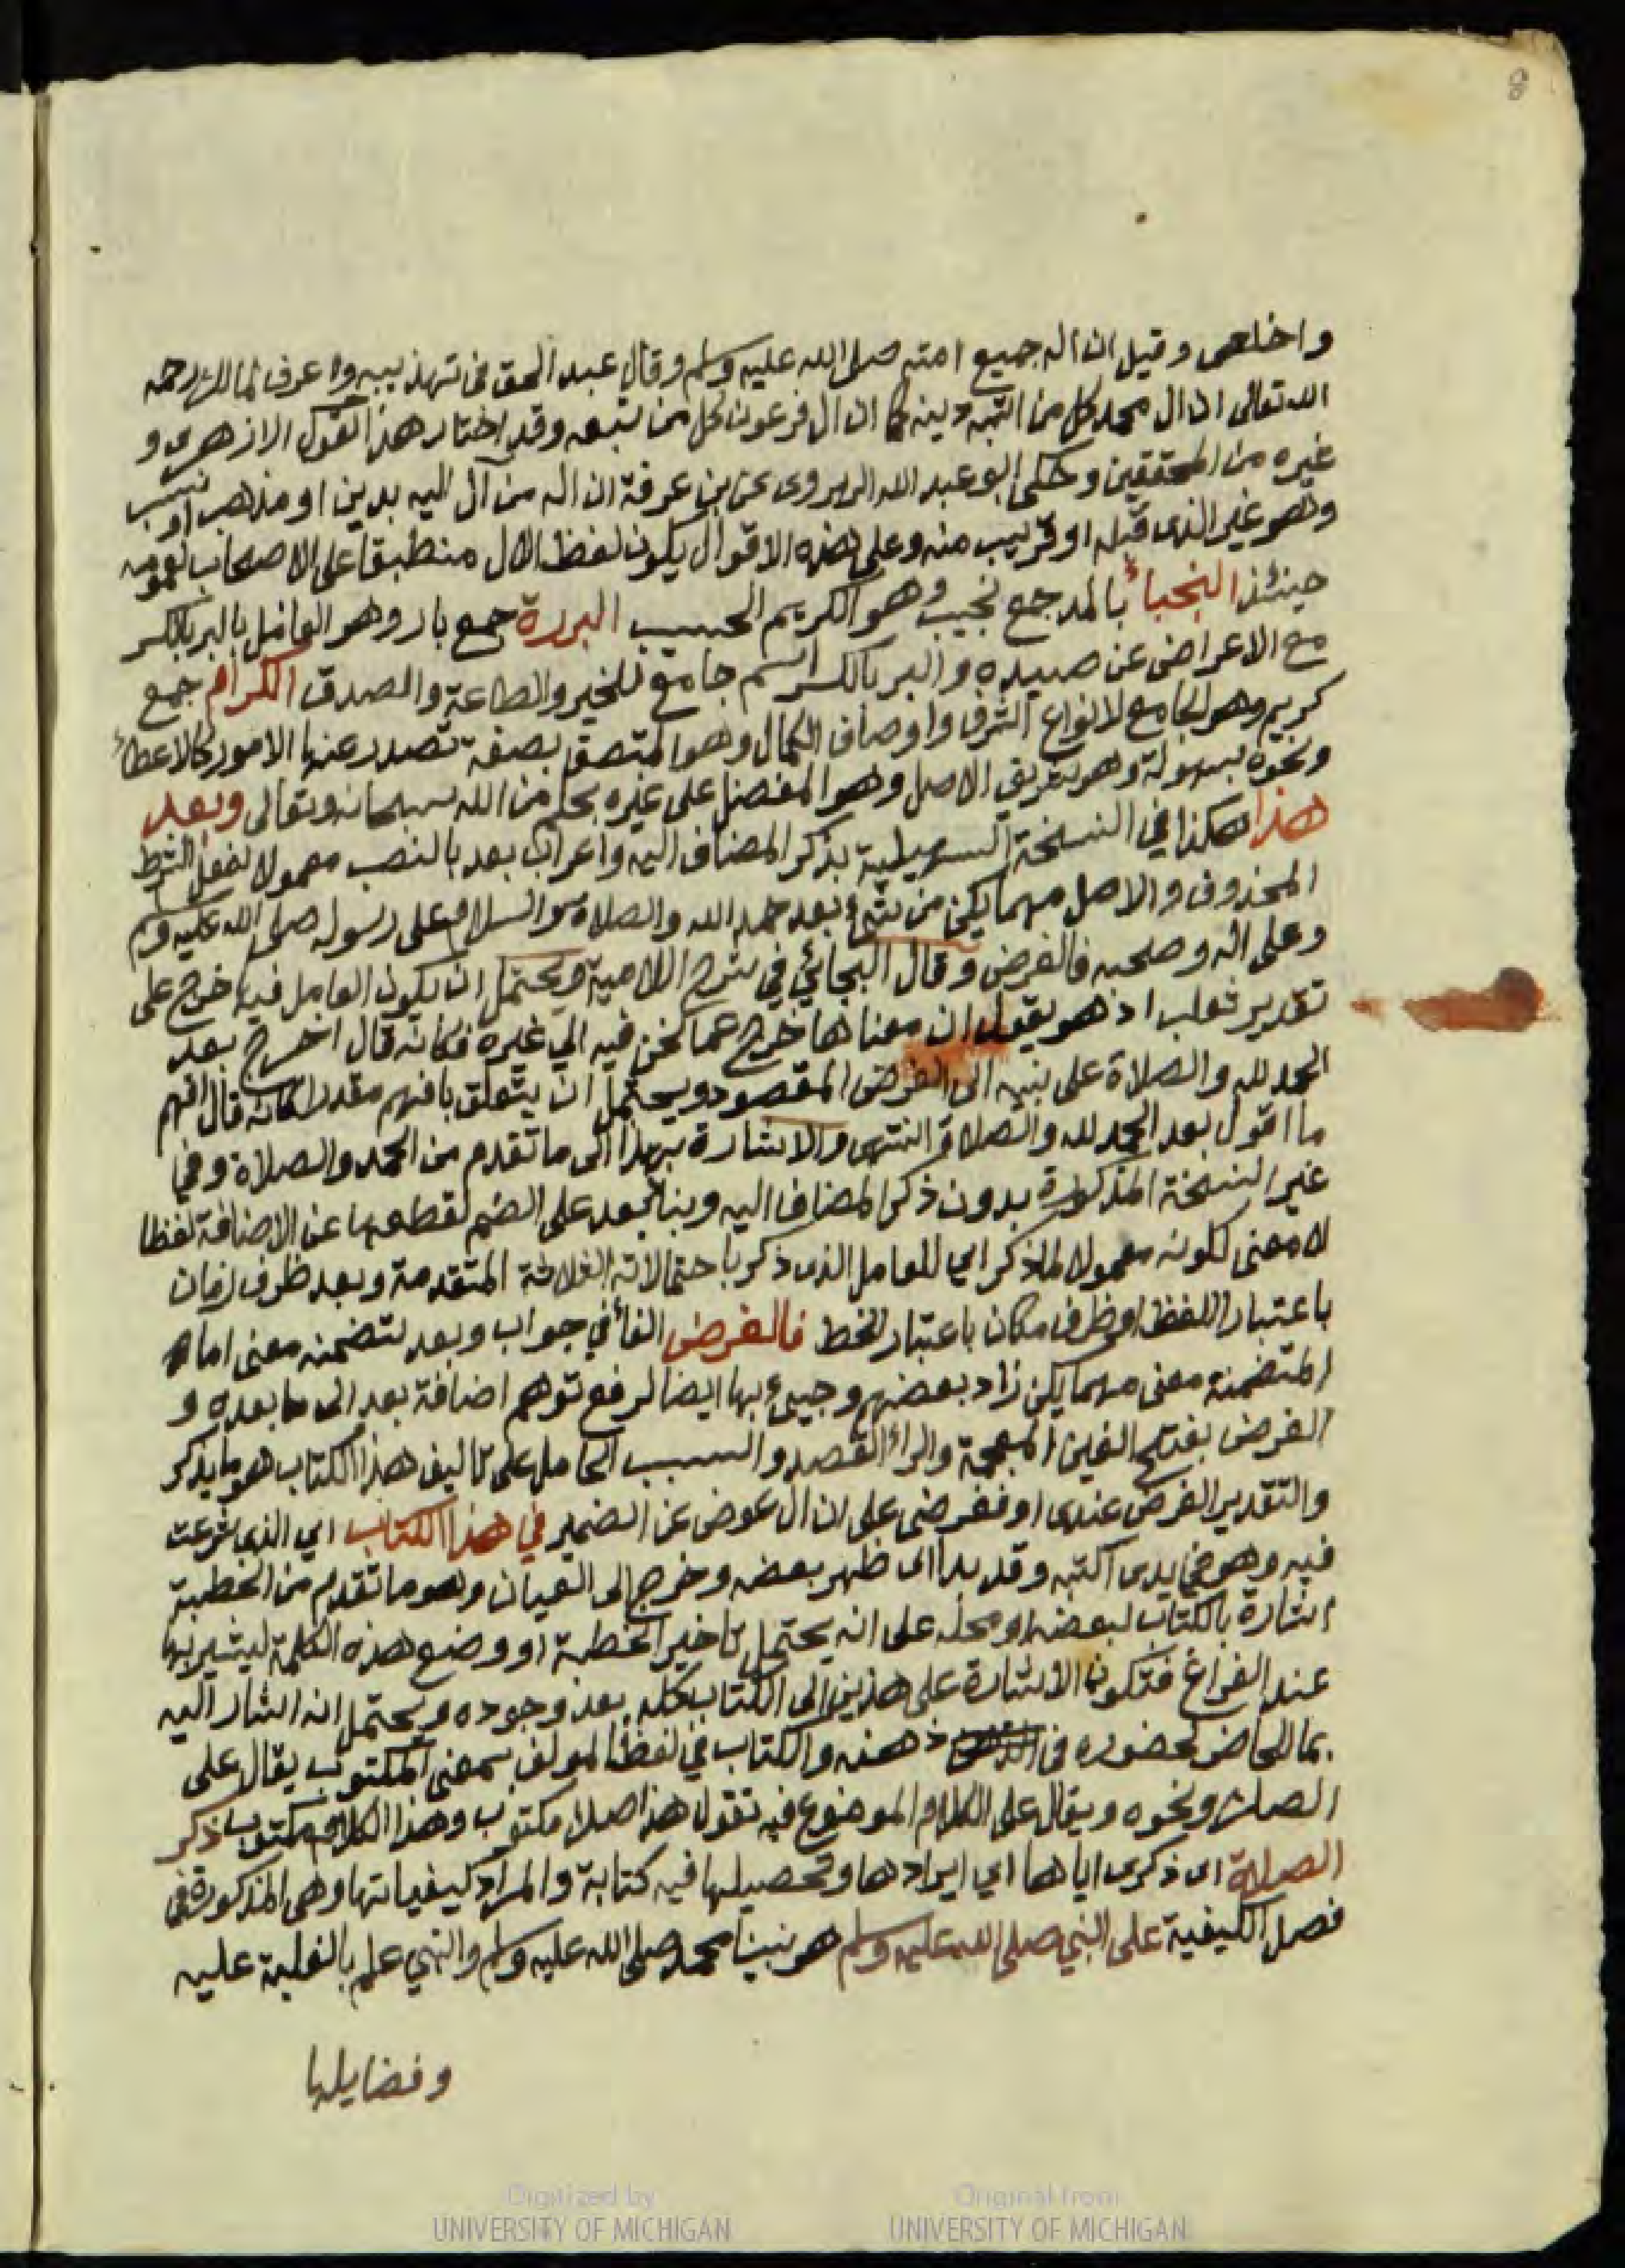 8
واخلص وقيل ان اله جميع امته صلى الله عليه وسلم وقال عبد الحق في تهذيبه واعرف لمالك رحمه
الله تعالى ان ال محمد كل من اتبع دينه كما ان ال فرعون كل من تبعه وقد اختار هذا القول الازهري و
غيره من المحققين وحكى ابو عبد الله الهروي عن بن عرفة ان اله من آل اليه بدين او مذهب او نسب
وهو غير الذي قبله او قريب منه وعلى هذه الاقوال يكون لفظ الال منطبقا على الاصحاب لعمومه
حينئذ النجباء بالمد جمع نجيب وهو الكريم الحسيب البررة جمع بار وهو الفاعل بالبر بالكسر
مع الاعراض عن ضده والبر بالكسر اسم جامع للخير والطاعة والصدق الكرام جمع
كريم وهو الجامع لانواع الشرف واوصاف الكمال وهو المتصف بصفة تصدر عنها الامور كالاعطاء
ونحوه بسهولة وهو عريق الاصل وهو المفضل على غيره بحكم من الله سبحانه وتعالى وبعد
هذا هكذا في النسخة السهيلية بذكر المضاف اليه واعراب بعد بالنصب معمولا لفعل الشرط
المحذوف والاصل مهما يكن من شيء بعد حمد الله والصلاة والسلام على رسوله صلى الله عليه وسلم
وعلى اله وصحبه فالغرض وقال البجائي في شرح اللامية ويحتمل ان يكون العامل فيها خرج على
تقدير ثعلب اذ هو يقول ان معناها خرج عما نحن فيه الي غيره فكانه قال اخرج بعد
الحمد لله والصلاة على نبيه الى الغرض المقصود ويحتمل ان يتعلق بافهم مقدرا كانه قال افهم
ما اقول بعد الحمد لله والصلاة انتهى والاشارة بهذا الى ما تقدم من الحمد والصلاة وفي
غير النسخة المذكورة بدون ذكر المضاف اليه وبنا بعد على الضم لقطعها عن الاضافة لفظا
لا معنى لكونه معمولا لما ذكر اي للعامل الذي ذكر باحتمالاته الثلاثة المتقدمة وبعد ظرف زمان
باعتبار اللفظ او ظرف مكان باعتبار الخط فالغرض الفاء في جواب وبعد لتضمنه معنى اما
المتضمنة معنى مهما يكن زاد بعضهم وجيء بها ايضا لرفع توهم اضافة بعد الى ما بعده و
الغرض بفتح الغين المعجمة والراء القصد والسبب الحامل على تاليف هذا الكتاب هو ما يذكر
والتقدير الغرض عندي او فغرضي على ان ال عوض عن الضمير في هذا الكتاب اي الذي شرعت
فيه وهو في يدي اكتبه وقد بدا اى ظهر بعضه وخرج الى العيان وهو ما تقدم من الخطبة
اشارة بالكتاب لبعضه او محله على انه يحتمل تاخير الخطبة او وضع هذه الكلمة ليشير بها
عند الفراغ فتكون الاشارة على هذين الى الكتاب كله بعد وجوده ويحتمل انه اشار اليه
بما للحاضر لحضوره في ذهنه والكتاب في لفظ المولف بمعنى المكتوب يقال على
الصك ونحوه ويقال على الكلام الموضوع فيه تقول هذا صك مكتوب وهذا الكلام مكتوب ذكر
الصلاة اى ذكري اياها اي ايرادها وتحصيلها فيه كتابة والمراد كيفياتها وهي المذكورة في
فصل الكيفية على النبي صلى الله عليه وسلم هو نبينا محمد صلى الله عليه وسلم والنبي علم بالغلبة عليه
وفضايلها
Digitized by
UNIVERSITY OF MICHIGAN
Original from
UNIVERSITY OF MICHIGAN